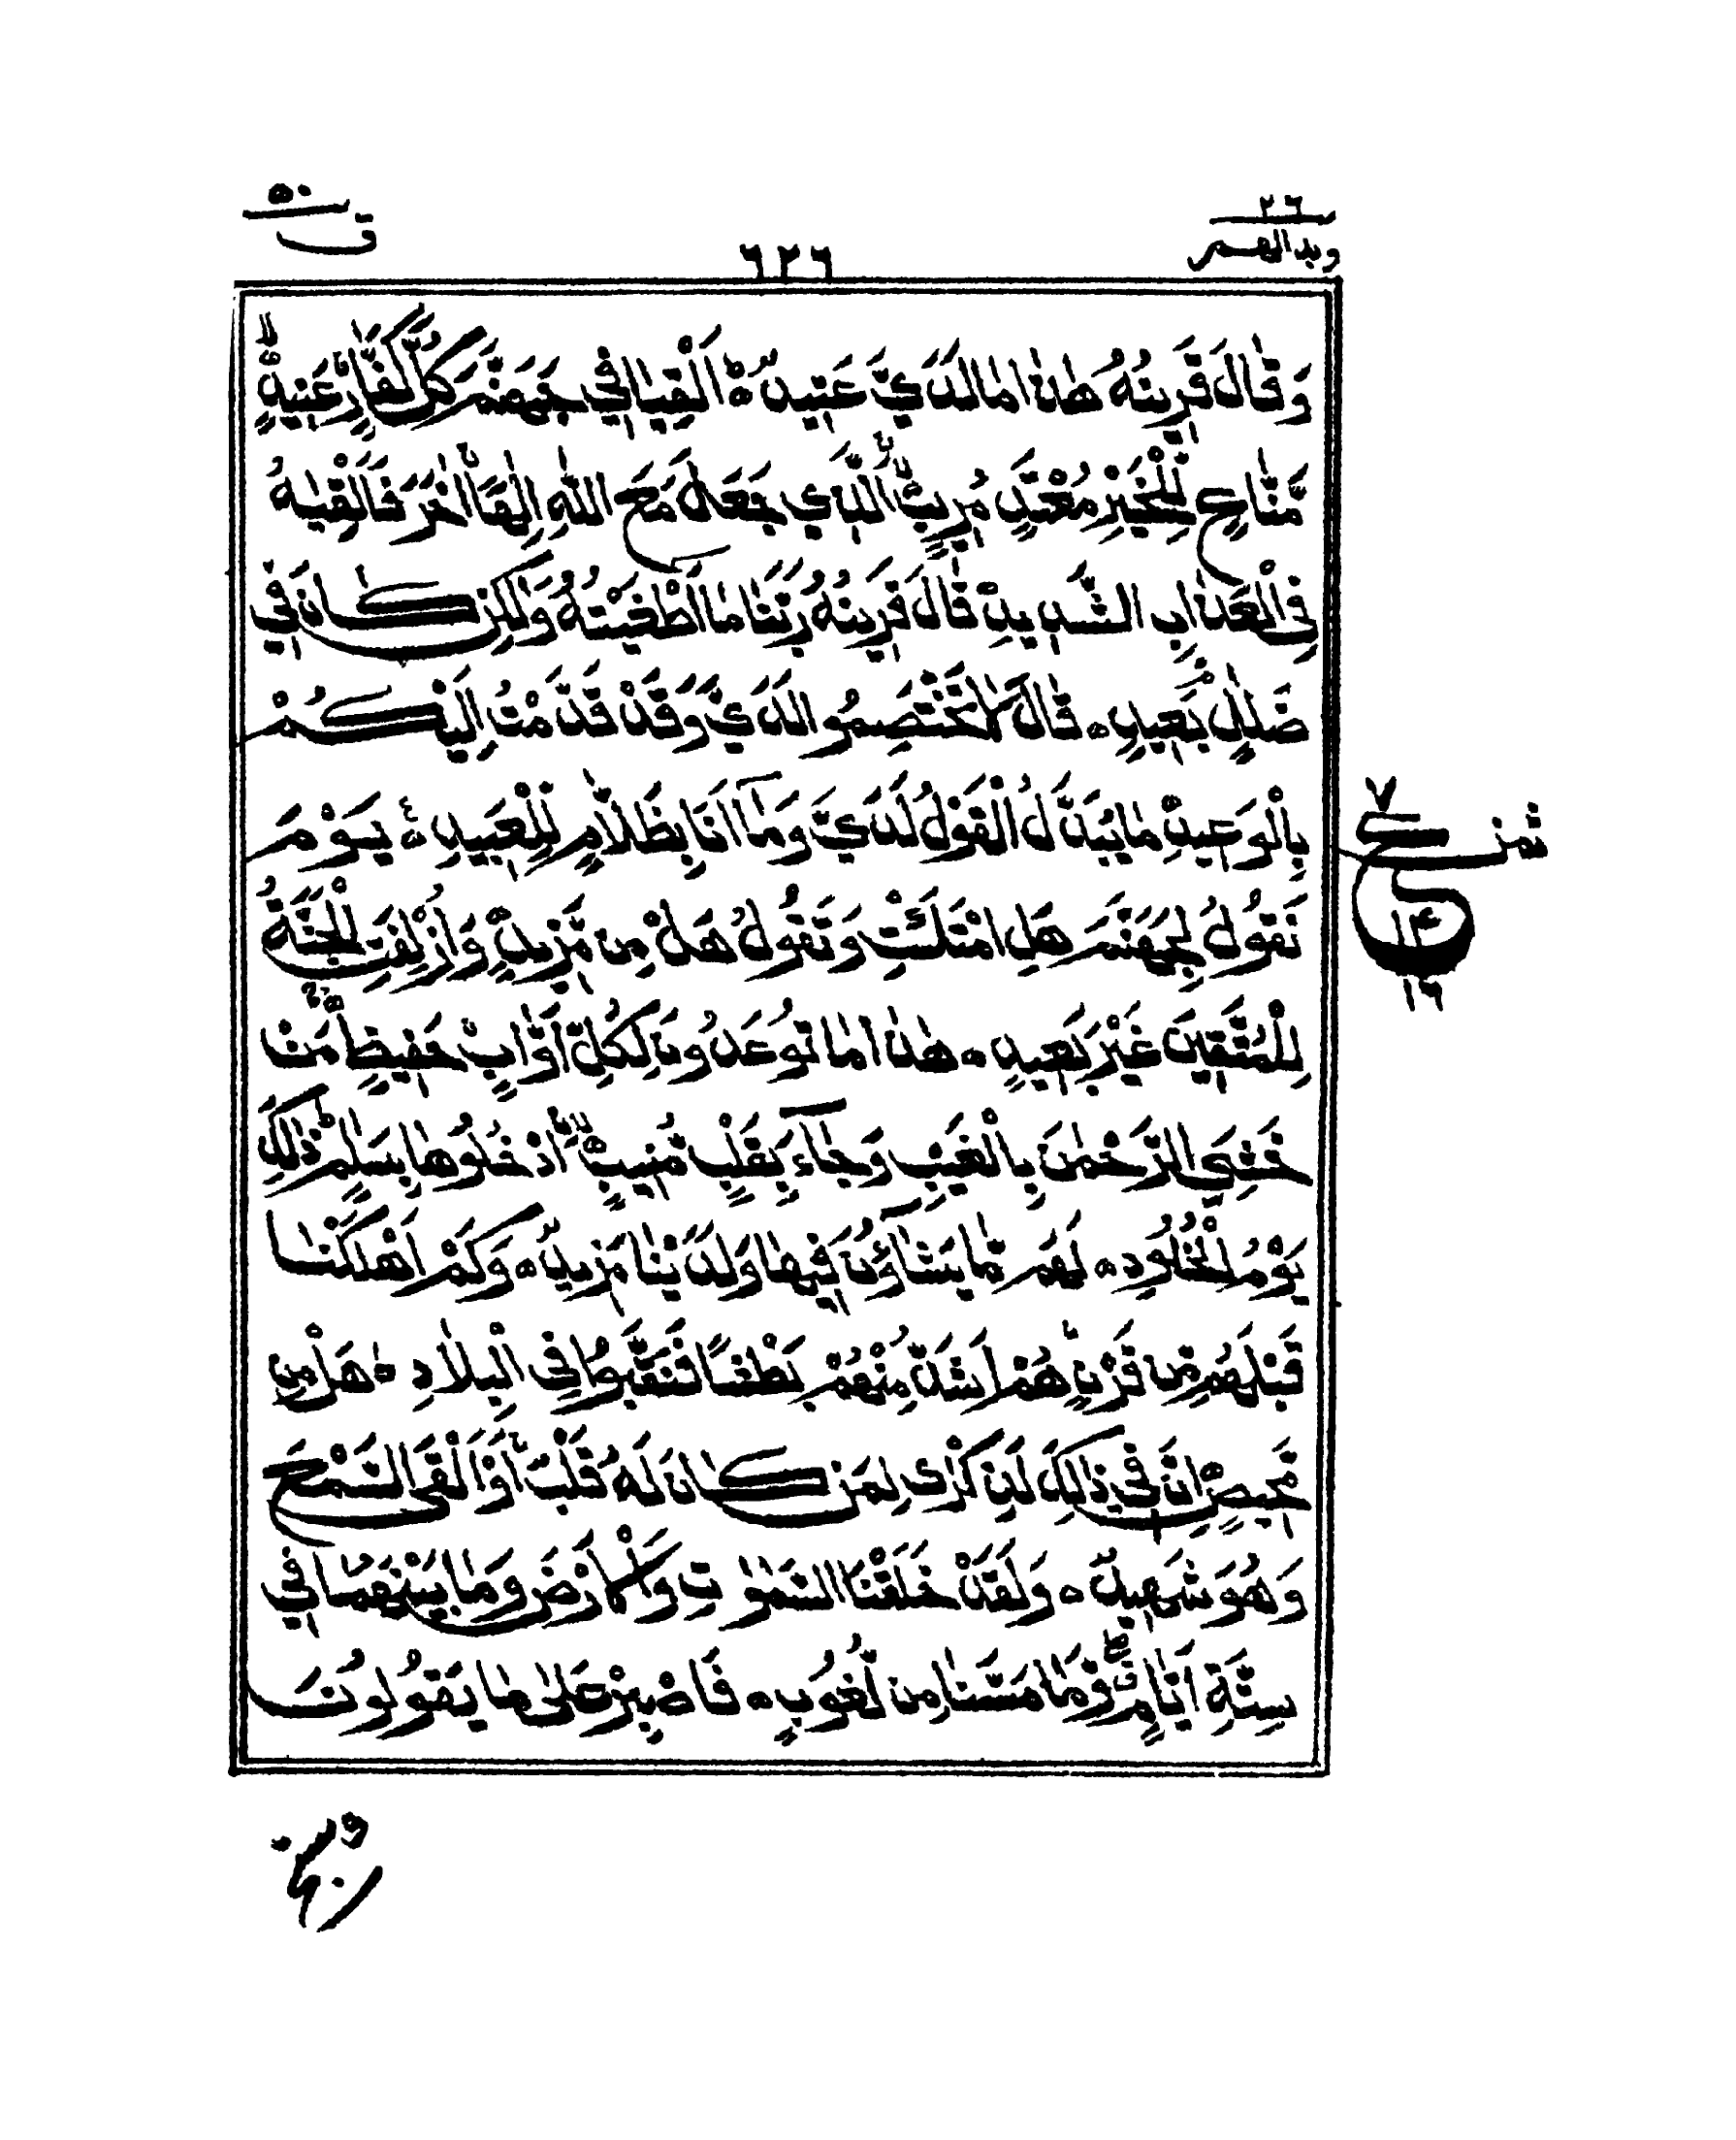 ٥٠
ق
٢٦
٦٢٦
وَقَالَ قَرِينُهُ هٰذَا مَا لَدَيَّ عَتِيدٌ ۝ اَلْقِيَا فِي جَهَنَّمَ كُلَّ كَفَّارٍ عَنِيدٍ
مَّنَّاعٍ لِّلْخَيْرِ مُعْتَدٍ مُّرِيبٍ الَّذِي جَعَلَ مَعَ اللّٰهِ اِلٰهًا اٰخَرَ فَاَلْقِيٰهُ
فِي الْعَذَابِ الشَّدِيدِ قَالَ قَرِينُهُ رَبَّنَا مَا اَطْغَيْتُهُ وَلٰكِن كَانَ فِي
ضَلٰلٍ بَعِيدٍ ۝ قَالَ لَا تَخْتَصِمُوا لَدَيَّ وَقَدْ قَدَّمْتُ اِلَيْكُمْ
بِالْوَعِيدِ مَا يُبَدَّلُ الْقَوْلُ لَدَيَّ وَمَآ اَنَا بِظَلَّامٍ لِّلْعَبِيدِ ۝ يَوْمَ
نَقُولُ لِجَهَنَّمَ هَلِ امْتَلَئْتِ وَتَقُولُ هَلْ مِن مَّزِيدٍ وَاُزْلِفَتِ الْجَنَّةُ
لِلْمُتَّقِينَ غَيْرَ بَعِيدٍ ۝ هٰذَا مَا تُوعَدُونَ لِكُلِّ اَوَّابٍ حَفِيظٍ مَنْ
خَشِيَ الرَّحْمٰنَ بِالْغَيْبِ وَجَآءَ بِقَلْبٍ مُّنِيبٍ ادْخُلُوهَا بِسَلٰمٍ ذٰلِكَ
يَوْمُ الْخُلُودِ ۝ لَهُم مَّا يَشَآؤُنَ فِيهَا وَلَدَيْنَا مَزِيدٌ ۝ وَكَمْ اَهْلَكْنَا
قَبْلَهُم مِّن قَرْنٍ هُمْ اَشَدُّ مِنْهُمْ بَطْشًا فَنَقَّبُوا فِي الْبِلَادِ ۝ هَلْ مِن
مَّحِيصٍ اِنَّ فِي ذٰلِكَ لَذِكْرٰى لِمَن كَانَ لَهُ قَلْبٌ اَوْ اَلْقَى السَّمْعَ
وَهُوَ شَهِيدٌ ۝ وَلَقَدْ خَلَقْنَا السَّمٰوٰتِ وَالْاَرْضَ وَمَا بَيْنَهُمَا فِي
سِتَّةِ اَيَّامٍ وَّمَا مَسَّنَا مِن لُّغُوبٍ ۝ فَاصْبِرْ عَلٰى مَا يَقُولُونَ
ثمن
٧
ع
١٤
١٦